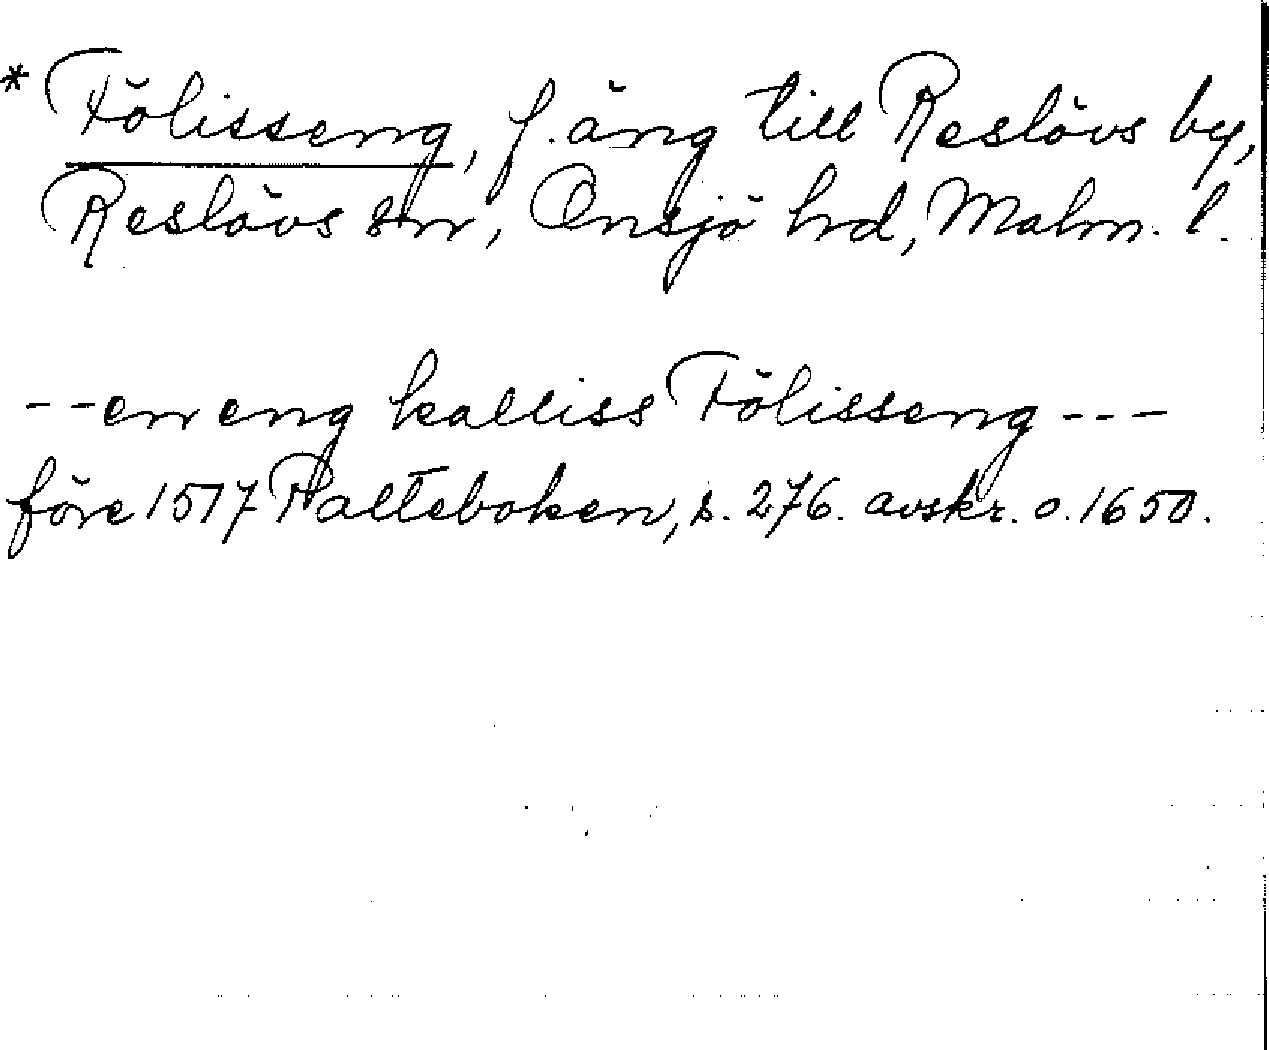 * Fölisseng, f. äng till Reslövs by,
Reslövs sn, Onsjö hd, Malm. l.
- - en eng kalliss Fölisseng - - -
före 1517 Palteboken, s. 276. avskr. o. 1650.